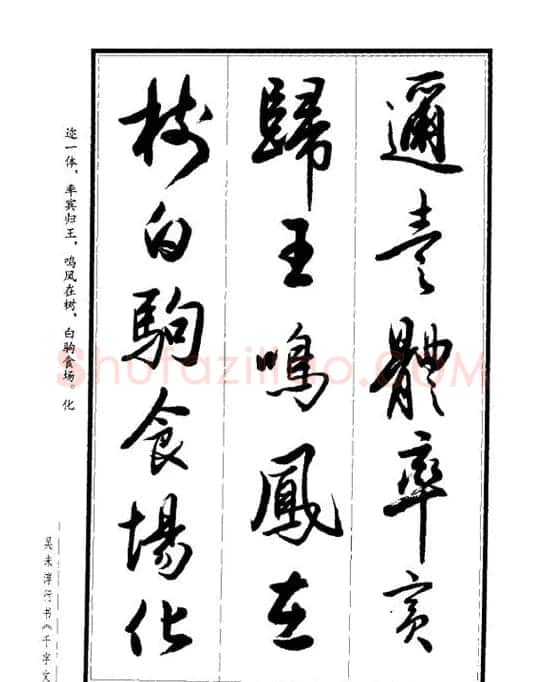 邇壹體率賓
歸王鳴鳳在
樹白駒食場化
迩一体，率宾归王。鸣凤在树，白驹食场。化
吴未淳行书《千字文
Shufaziliao.COM